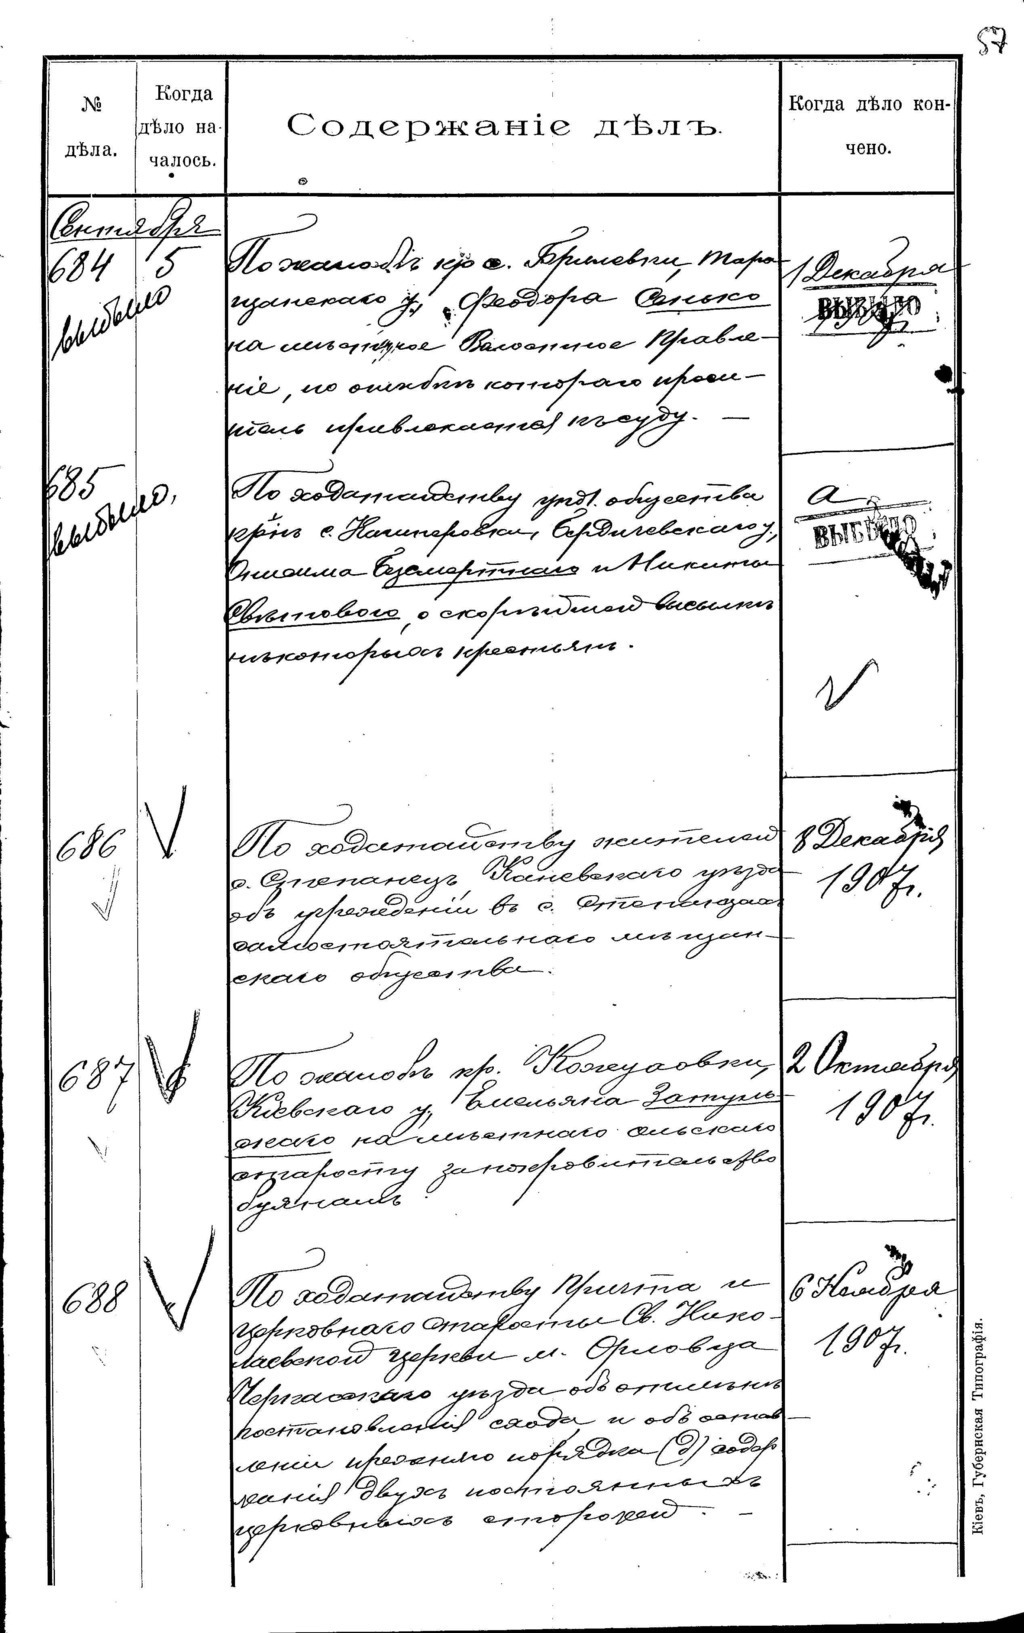 57
№ дѣла.
Когда дѣло на-
чалось.
Содержаніе дѣлъ.
Когда дѣло кон-
чено.
Сентября
684
5
выбыло
По жалобѣ кр. с. Брилевки, Тара-
щанскаго у., Феодора Сенько
на мѣстное Волостное Правле-
ніе, по ошибкѣ котораго проси-
тель привлекается къ суду. —
1 Декабря
1907 г.
ВЫБЫЛО
685
выбыло,
По ходатайству упол. общества
кр-нъ с. Бердичевскаго у.,
Онисима Безсмертнаго и Никиты
о скорѣйшей высылкѣ
нѣкоторыхъ крестьянъ.
ВЫБЫЛО
686
По ходатайству жителей
с. Степанецъ, Каневскаго уѣзда
объ учрежденіи въ с. Степанцахъ
самостоятельнаго мѣщан-
скаго общества.
8 Декабря
1907 г.
687
По жалобѣ кр. Кожуховки,
Кіевскаго у., Емельяна Затуль-
скаго на мѣстнаго сельскаго
старосту за покровительство
буянамъ.
2 Октября
1907 г.
688
По ходатайству Причта и
церковнаго старосты Св. Нико-
лаевской церкви м. Орловца
Черкасскаго уѣзда объ отмѣнѣ
постановленія схода и объ остав-
леніи прежняго порядка (д) содер
жанія двухъ постоянныхъ
церковныхъ сторожей. —
6 Ноября
1907 г.
Кіевъ, Губернская Типографія.